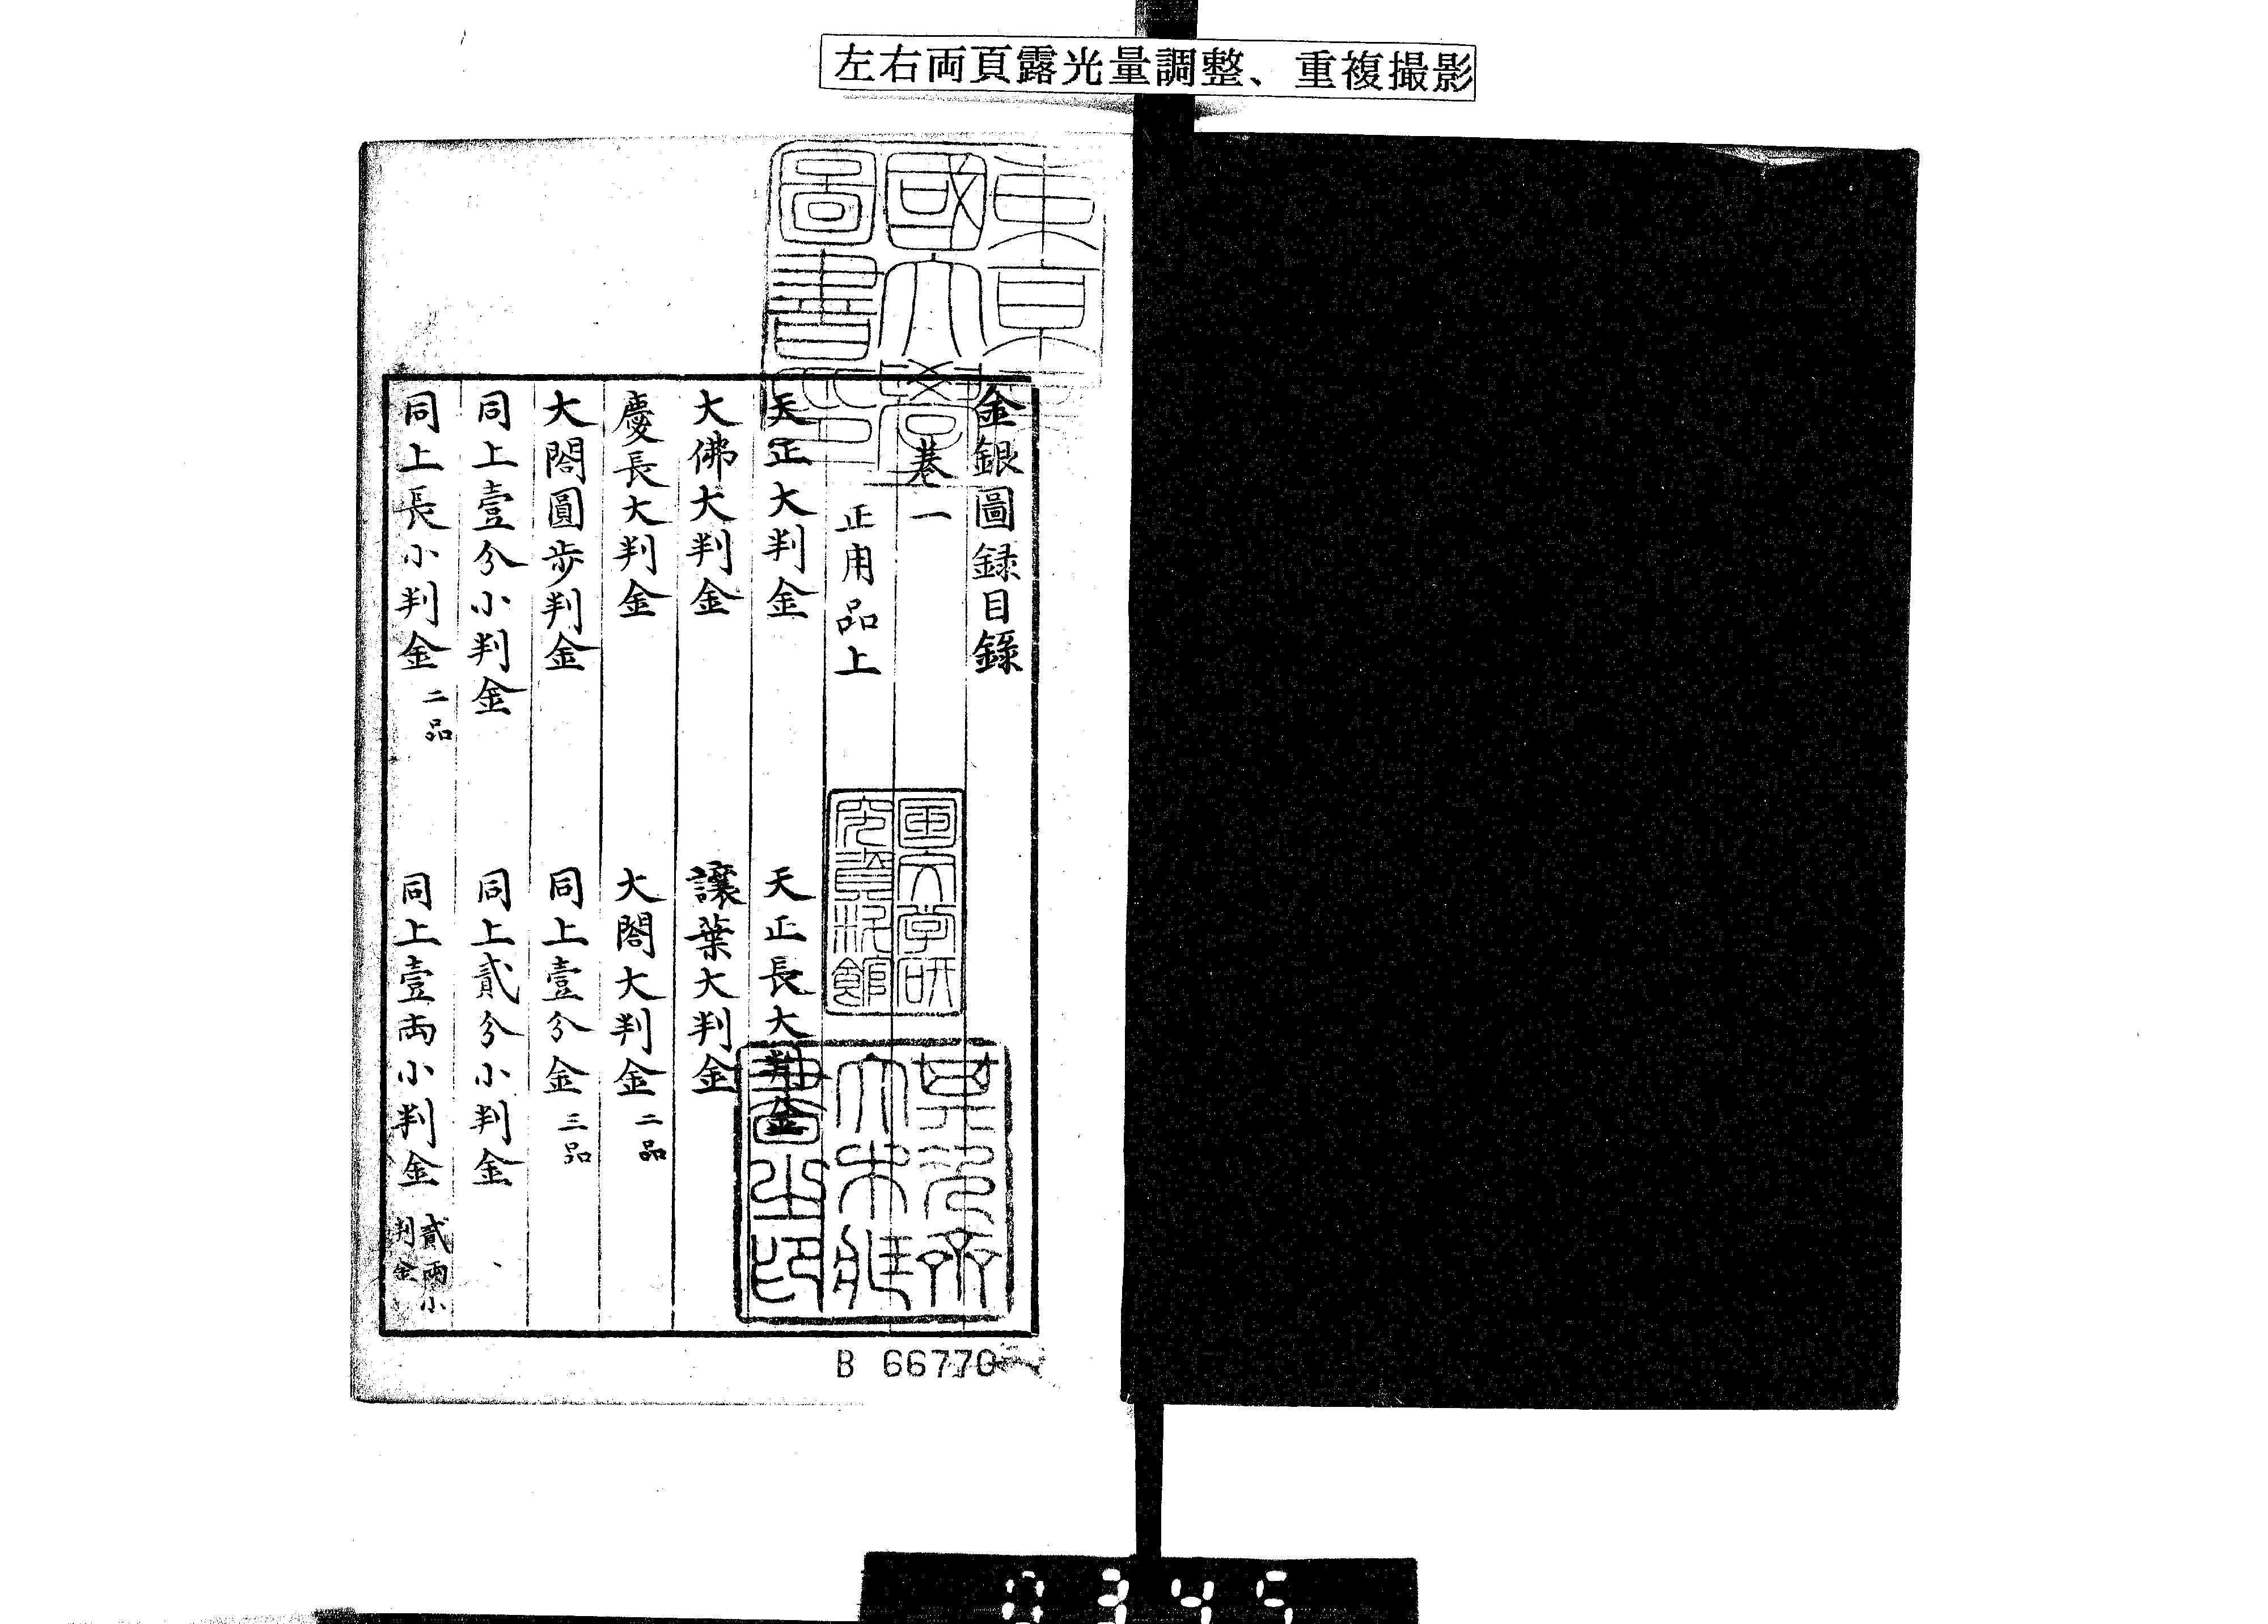 左右両頁露光量調整、重複撮影
金銀圖録目錄
巻一
正用品上
天正大判金
天正長大判金
大佛大判金
讓葉大判金
慶長大判金
大閤大判金 二品
大閤圓步判金
同上壹分金 三品
同上壹分小判金
同上貳分小判金
同上長小判金 二品
同上壹兩小判金 貳兩小
判金
東京
國大學
圖書印
国文学研
究資料館
B 66770
0345